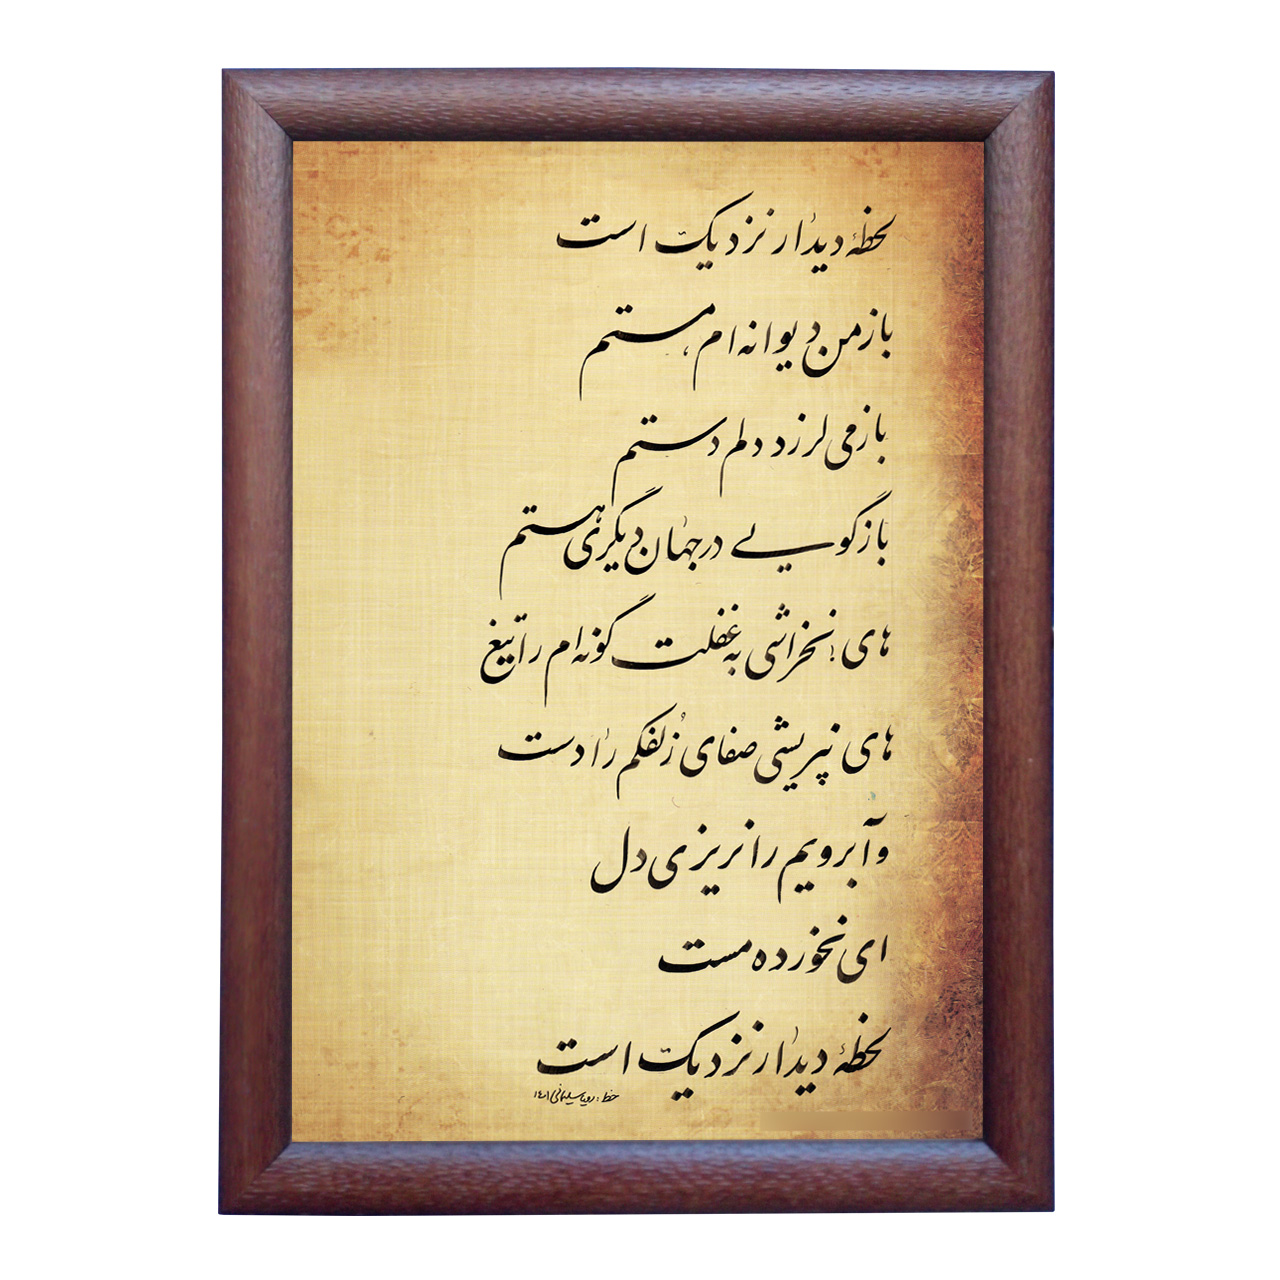 لحظهٔ دیدار نزدیک است
باز من دیوانه‌ام، مستم
باز می لرزد دلم دستم
باز گویی در جهان دیگری هستم
های! نخراشی به غفلت گونه‌ام را تیغ
های نپریشی صفای زلفکم را دست
و آبرویم را نریزی دل
ای نخورده مست
لحظهٔ دیدار نزدیک است
خط: رویا سلیمانی ۱۴۰۱